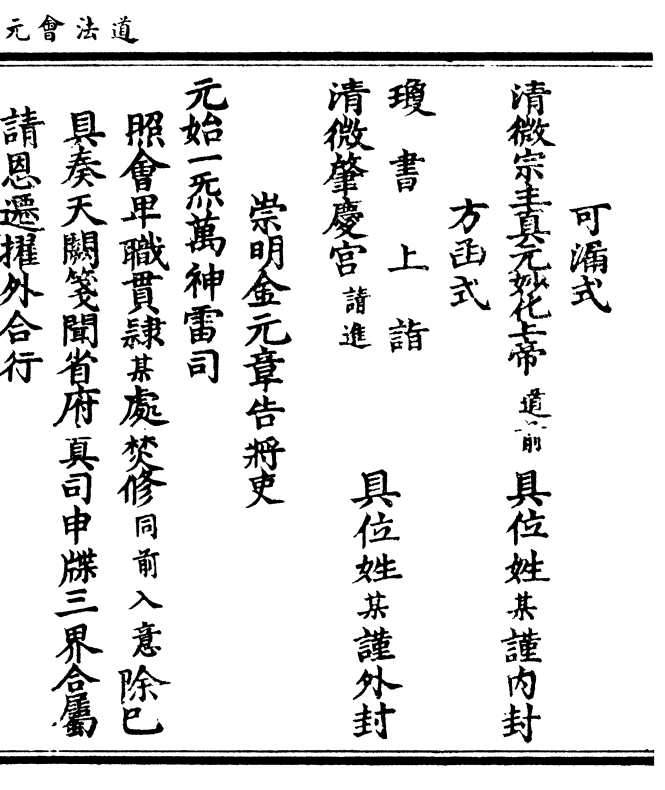 道法會元
可漏式
清微宗主真元妙化上帝 道前 具位姓某謹內封
方函式
瓊書上詣
清微肇慶宮 請進 具位姓某謹外封
崇明金元章告將吏
元始一炁萬神雷司
照會卑職貫隸某處焚修同前入意除已
具奏天闕箋聞省府真司申牒三界合屬
請恩遷擢外合行